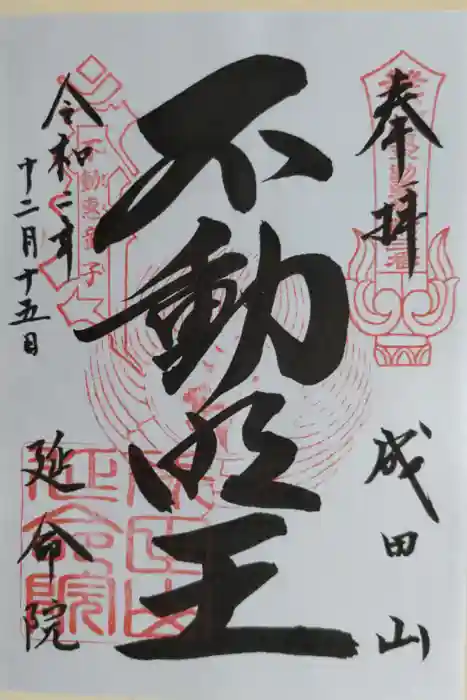 奉拝
成田山
不動明王
令和二年
十二月十五日
延命院
不動恵童子